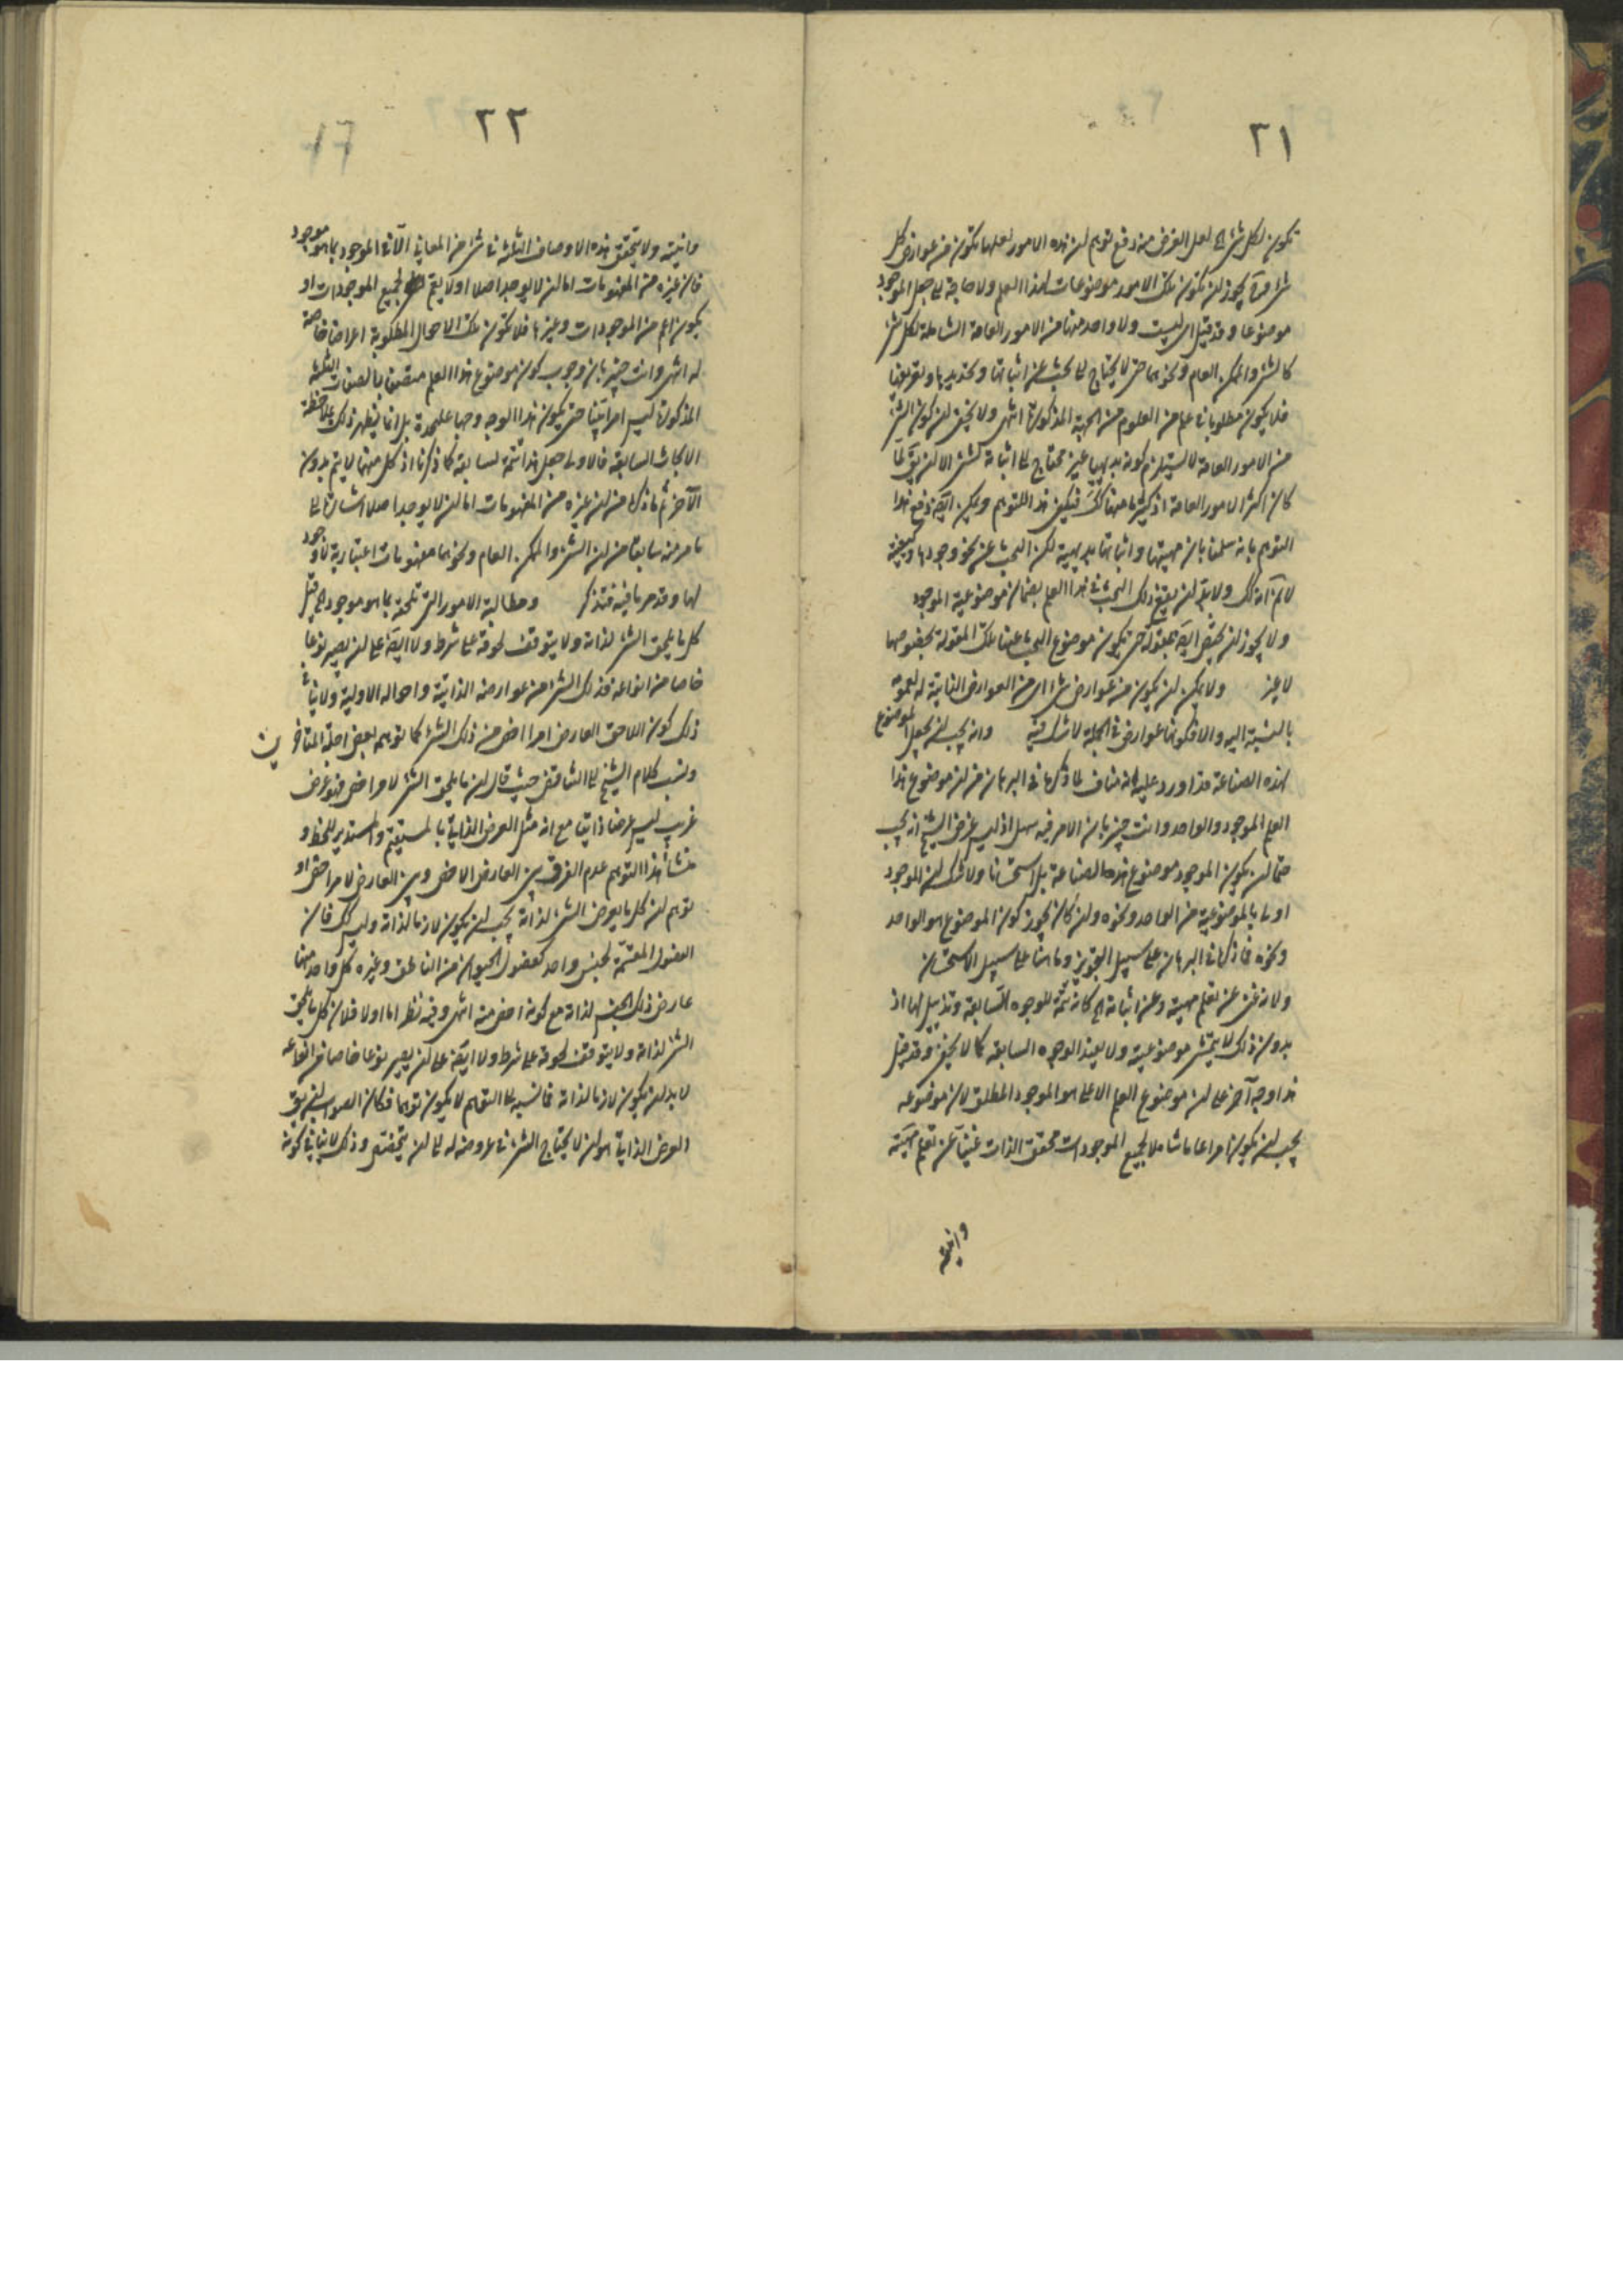 ٢١
تكون لكل شئ الخ لعل الغرض منه دفع توهم ان هذه الامور لعلها تكون من عوارض كل
شئ فح يجوز ان تكون تلك الامور موضوعات لهذا العلم ولا حاجة الى جعل الموجود
موضوعا وقد قيل اى ليست ولا واحد منها من الامور العامة الشاملة لكل شئ
كالشئ والممكن العام ونحوهما حتى لا يحتاج الى البحث عن اثباتها وتحديدها وتعريفها
فلا يكون مطلوبا فى علم من العلوم من الجهة المذكورة انتهى ولا يخفى ان كون الشئ
من الامور العامة لا يستلزم كونه بديهيا غير محتاج الى اثباته الا ان يق لما
كان اكثر الامور العامة اذ كثير منها كك فيكفى هذا للتوهم ويمكن ايض دفع هذا
التوهم بانه سلمنا بان مهيتها واثباتها بديهية لكن البحث عن نحو وجودها وكيفيته
لا نم انه كك ولا بد ان يقع ذلك البحث فى هذا العلم بضمان موضوعية الموجود
ولا يجوز ان يختص ايض بمقولة حتى يكون موضوع البحث عنها تلك المقولة بخصوصها
لا غير ولا يمكن ان يكون من عوارض شئ اى من العوارض الذاتية له لعمومه
بالنسبة اليه والا فكونها عوارض فى الجملة لا شك فيه وانه يجب ان يجعل الموضوع
لهذه الصناعة قد اورد عليه انه مناف لما ذكر فى البرهان من ان موضوع هذا
العلم الموجود والواحد وانت خبير بان الامر فيه سهل اذ ليس غرض الشيخ انه يجب
حتما ان يكون الموجود موضوع هذه الصناعة بل استحسانا ولا شك ان الموجود
اولى بالموضوعية من الواحد ونحوه وان كان يجوز كون الموضوع هو الواحد
ونحوه فما ذكر فى البرهان على سبيل التجويز وما هنا على سبيل الاستحسان
ولانه غنى عن تعلم مهيته وعن اثباته الخ كانه تتمة للوجوه السابقة وتذييل لها اذ
بدون ذلك لا يتمشى موضوعيته ولا يفيد الوجوه السابقة كما لا يخفى وقد قيل
هذا وجه آخر على ان موضوع العلم الاعلى هو الموجود المطلق لان موضوعه
يجب ان يكون امرا عاما شاملا لجميع الموجودات محقق الذات غنيا عن تعلم مهيته
وانيته
٢٢
وانيته ولا يتحقق هذه الاوصاف الثلثة فى شئ من المعانى الا فى الموجود بما هو موجود
فان غيره من المفهومات اما ان لا يوجد اصلا او لا يعم لجميع الموجودات او
يكون اعم من الموجودات وغيرها فلا تكون تلك الاحوال المطلوبة اعراضا خاصة
له انتهى وانت خبير بان وجوب كون موضوع هذا العلم متصفا بالصفات الثلثة
المذكورة ليس امرا بينا حتى يكون هذا الوجه وجها عليحدة بل انما يظهر ذلك بملاحظة
الابحاث السابقة فالاولى جعل هذا تتمة لسابقه كما ذكرنا اذ كل منهما لا يتم بدون
الآخر ثم ما ذكره من ان غيره من المفهومات اما ان لا يوجد اصلا اشارة الى
ما مر منه سابقا من ان الشئ والممكن العام ونحوهما مفهومات اعتبارية لا وجود
لها وقد مر ما فيه فتذكر ومطالبه الامور التى تلحقه بما هو موجود الخ قيل
كل ما يلحق الشئ لذاته ولا يتوقف لحوقه على شرط ولا ايض على ان يصير نوعا
خاصا من انواعه فذلك الشئ من عوارضه الذاتية واحواله الاولية ولا ينافى
ذلك كون اللاحق العارض امرا اخص من ذلك الشئ كما توهم بعض اجلة المتاخرين
ونسب كلام الشيخ الى التناقض حيث قال ان ما يلحق الشئ لامر اخص فهو عرض
غريب ليس عرضا ذاتيا مع انه مثل العرض الذاتى بالمستقيم والمستدير للخط و
منشأ هذا التوهم عدم الفرق بين العارض الاخص وبين العارض لامر اخص او
توهم ان كل ما يعرض الشئ لذاته يجب ان يكون لازما لذاته وليس كك فان
الفصول المقسمة لجنس واحد كفصول الحيوان من الناطق وغيره كل واحد منها
عارض ذلك الجنس لذاته مع كونه اخص منه انتهى وفيه نظر اما اولا فلان كل ما يلحق
الشئ لذاته ولا يتوقف لحوقه على شرط ولا ايض على ان يصير نوعا خاصا من انواعه
لا بد ان يكون لازما لذاته فما نسبه الى التوهم لا يكون توهما فكان الصواب ان يق
العرض الذاتى هو ان لا يحتاج الشئ فى عروضه له الى ان يتخصص وذلك لا ينافى كونه